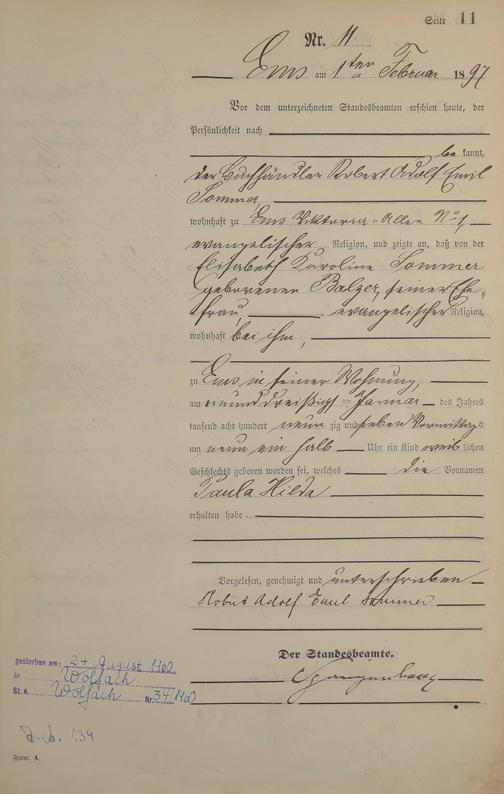 Seite 11
Nr. 11
Ems am 1ten Februar 1897
Vor dem unterzeichneten Standesbeamten erschien heute, der
Persönlichkeit nach
be kannt,
der Buchhändler Robert Adolf Emil
Sommer,
wohnhaft zu Ems Viktoria-Allee No 1,
evangelischer Religion, und zeigte an, daß von der
Elisabeth Karoline Sommer
geborenen Balzer, seiner Ehe-
frau, evangelischer Religion,
wohnhaft bei ihm,
zu Ems in seiner Wohnung,
am einunddreißigsten Januar des Jahres
tausend acht hundert neun zig und sieben Vormittags
um neun ein halb Uhr ein Kind weib lichen
Geschlechts geboren worden sei, welches die Vornamen
Paula Hilda
erhalten habe.
Vorgelesen, genehmigt und unterschrieben
Robert Adolf Emil Sommer
Der Standesbeamte.
gestorben am: 24. August
in Wolfach
St. A. Wolfach Nr. 34
139
Form. A.